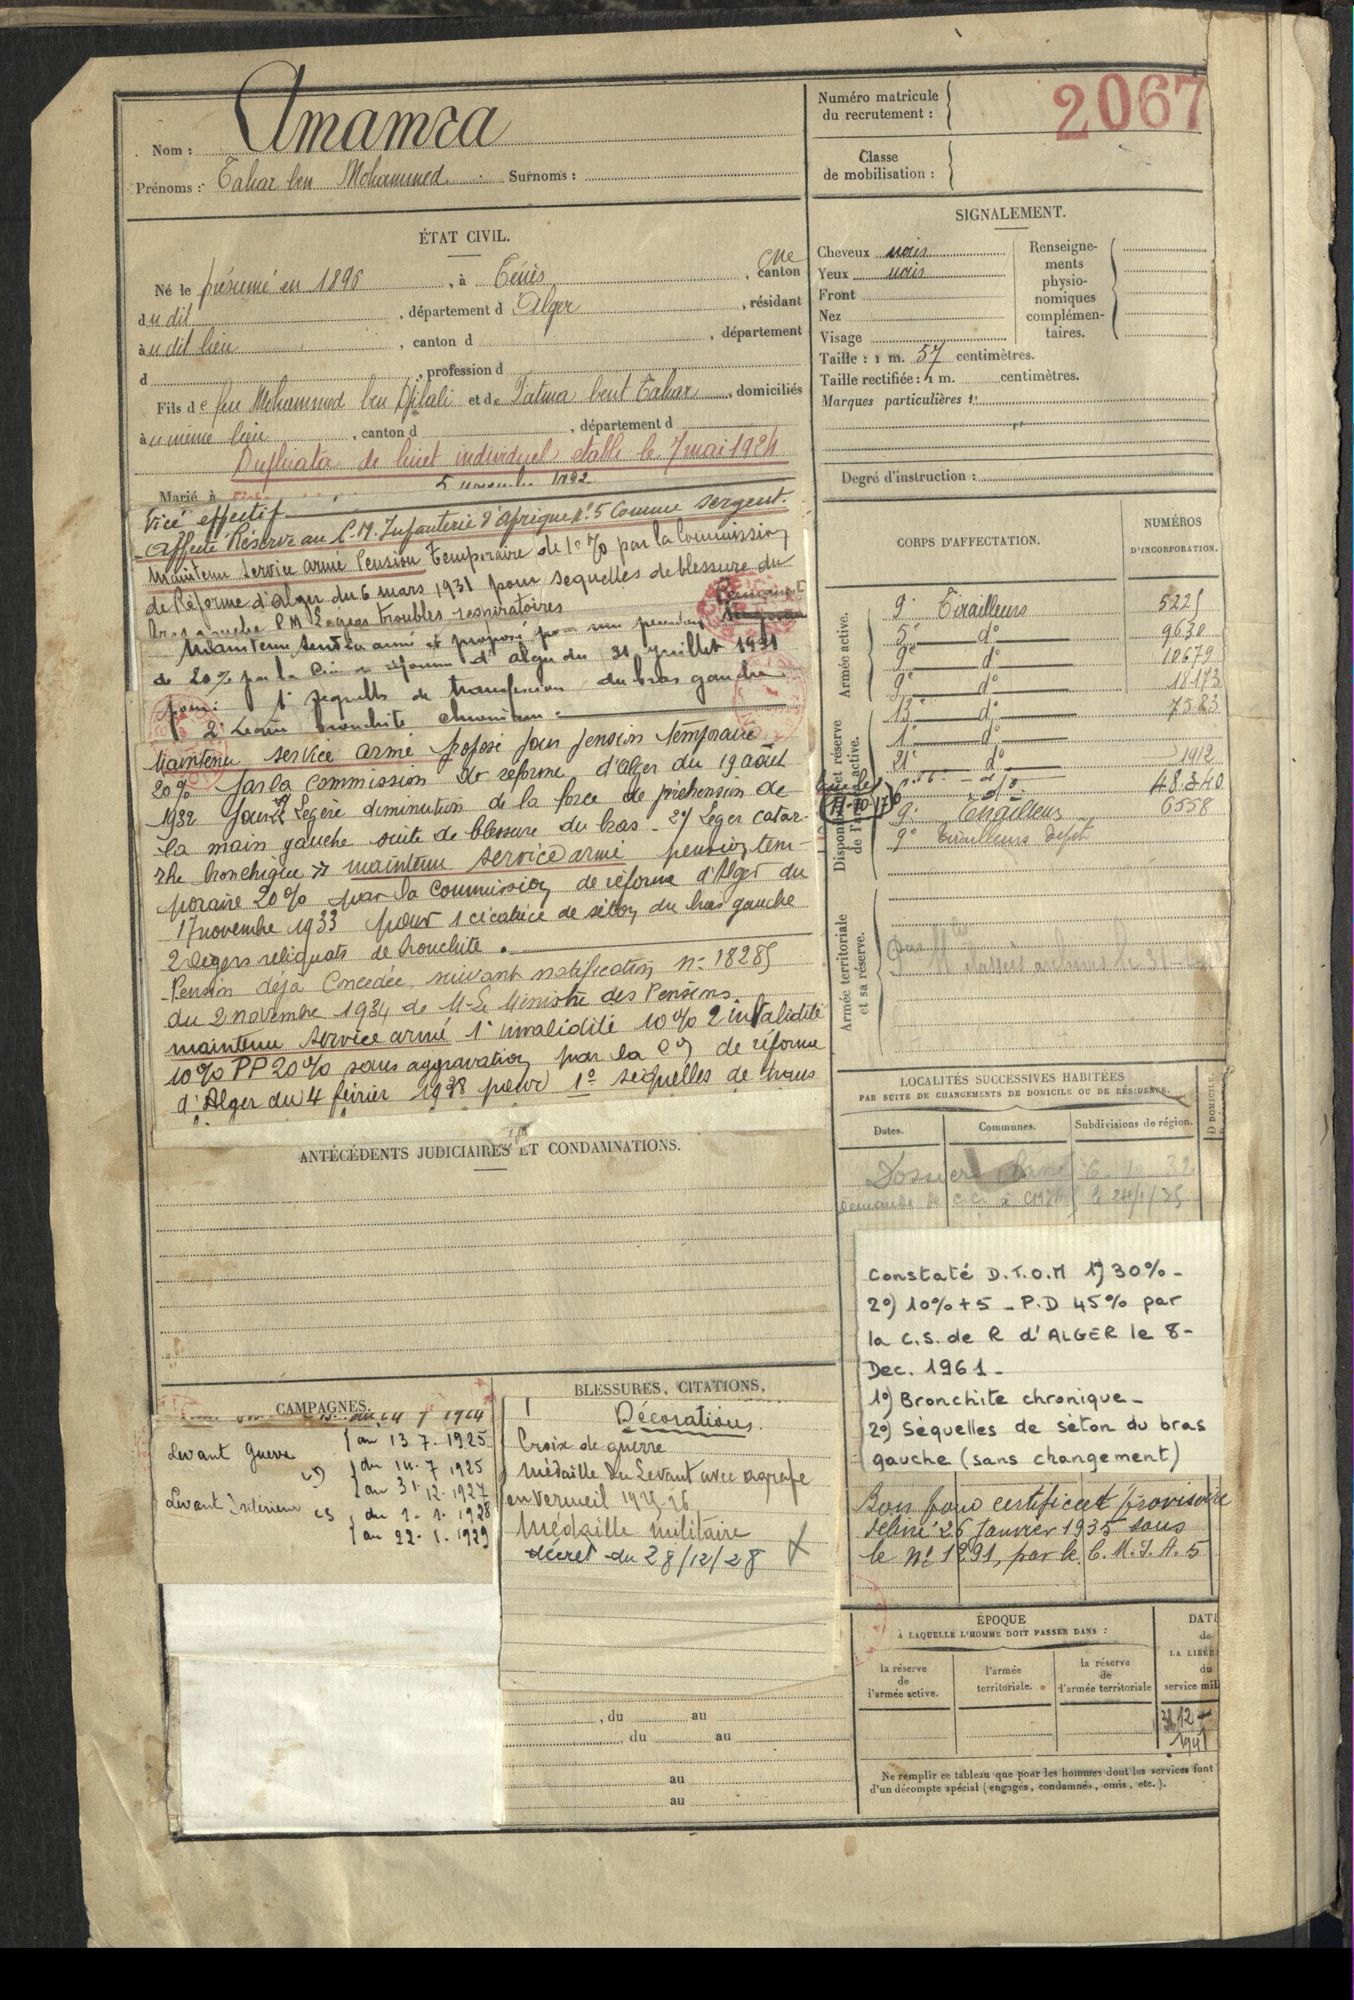 Nom : Amamra
Prénoms : Tahar ben Mohammed Surnoms :
Numéro matricule du recrutement : 2067
Classe de mobilisation :
ÉTAT CIVIL.
Né le présumé en 1896, à Ténès, cne canton
du dit, département d Alger, résidant
au dit lieu, canton d , département
d , profession d
Fils de feu Mohammed ben Djilali et de Fatma bent Tahar, domiciliés
au même lieu, canton d , département d
Duplicata de livret individuel établi le 7 mai 1924
Marié à
vice effectif
Affecté Réserve au C.M. Infanterie d'Afrique N° 5 comme sergent.
Maintenu service armé Pension temporaire de 10% par la Commission
de Réforme d'Alger du 6 mars 1931 pour sequelles de blessure du
bras gauche P M Légers troubles respiratoires
Maintenu service armé et proposé pour une pension
de 20% par la Cion de réforme d'Alger du 31 juillet 1931
pour: 1° sequelles de transfixion du bras gauche
2° Légère bronchite chronique
Maintenu service armé proposé pour pension temporaire
20% par la Commission de réforme d'Alger du 19 août
1932 pour Légère diminution de la force de préhension de
la main gauche suite de blessure du bras - 2°/ Léger catar-
rhe bronchique maintenu service armé pension tem-
poraire 20% par la Commission de réforme d'Alger du
17 novembre 1933 pour 1 cicatrice de séton du bras gauche
2 légers reliquats de bronchite.
Pension déjà Concédée suivant notification n° 18285
du 2 novembre 1934 de M. Le Ministre des Pensions.
maintenu service armé 1° invalidité 10% 2 invalidité
10% PP 20% sans aggravation par la Con de réforme
d'Alger du 4 février 1938 pour 1° sequelles de
ANTÉCÉDENTS JUDICIAIRES ET CONDAMNATIONS.
CAMPAGNES.
1924
Levant Guerre au 13-7-1925
du 14-7 1925
au 31-12-1927
Levant Intérieur CS du 1-1-1928
au 22-1-1929
BLESSURES, CITATIONS,
Décorations.
Croix de guerre
Médaille du Levant avec agrafe
en vermeil 1925-26
Médaille militaire
décret du 28/12/28
, du au
, du au
au
au
SIGNALEMENT.
Cheveux noirs
Yeux noirs
Front
Nez
Visage
Taille : 1 m. 57 centimètres.
Taille rectifiée : 1 m. centimètres.
Marques particulières :
Renseigne-
ments
physio-
nomiques
complémen-
taires.
Degré d'instruction :
CORPS D'AFFECTATION.
NUMÉROS
D'INCORPORATION.
Armée active.
9e Tirailleurs 5225
5e do 9630
9e do 10679
9e do 18173
Disponibilité et réserve de l'armée active.
13e do 7563
1e do
21e do 1912
48.340
9e Tirailleurs 6558
9e Tirailleurs dépôt
Armée territoriale
et sa réserve.
LOCALITÉS SUCCESSIVES HABITÉES
PAR SUITE DE CHANGEMENTS DE DOMICILE OU DE RÉSIDENCE.
Dates.
Communes.
Subdivisions de région.
D DOMICILE.
Dossier
Demande de C.C. à
Constaté D.T.O.M 1°) 30% -
2°) 10% + 5 - P.D 45% par
la C.S. de R d'ALGER le 8-
Dec. 1961 -
1°) Bronchite chronique -
2°) Séquelles de séton du bras
gauche (sans changement)
Bon pour certificat provisoire
délivré 26 Janvier 1935 sous
le N° 1291, par le C.M.I.A. 5
ÉPOQUE
À LAQUELLE L'HOMME DOIT PASSER DANS :
la réserve
de
l'armée active.
l'armée
territoriale.
la réserve
de
l'armée territoriale
DATE
de
LA LIBÉR
du
service mil
31-12-
1941
Ne remplir ce tableau que pour les hommes dont les services font
d'un décompte spécial (engagés, condamnés, omis, etc.).